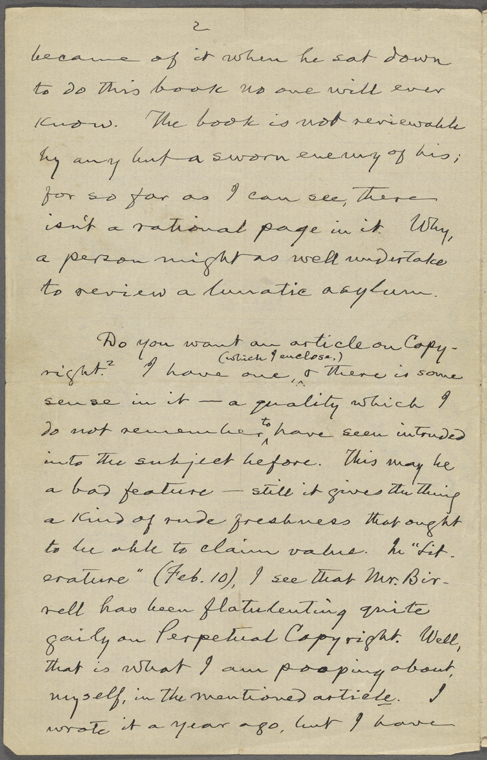 2
became of it when he sat down
to do this book no one will ever
know. The book is not reviewable
by any but a sworn enemy of his;
for so far as I can see, there
isn't a rational page in it. Why,
a person might as well undertake
to review a lunatic asylum.
Do you want an article on Copy-
(which I enclose,)
right? I have one, & there is some
sense in it — a quality which I
do not remember to have seen intruded
into the subject before. This may be
a bad feature — still it gives the thing
a kind of rude freshness that ought
to be able to claim value. In "Lit-
erature" (Feb. 10), I see that Mr. Bir-
rell has been flatulenting quite
gaily on Perpetual Copyright. Well,
that is what I am pooping about,
myself, in the mentioned article. I
wrote it a year ago, but I have